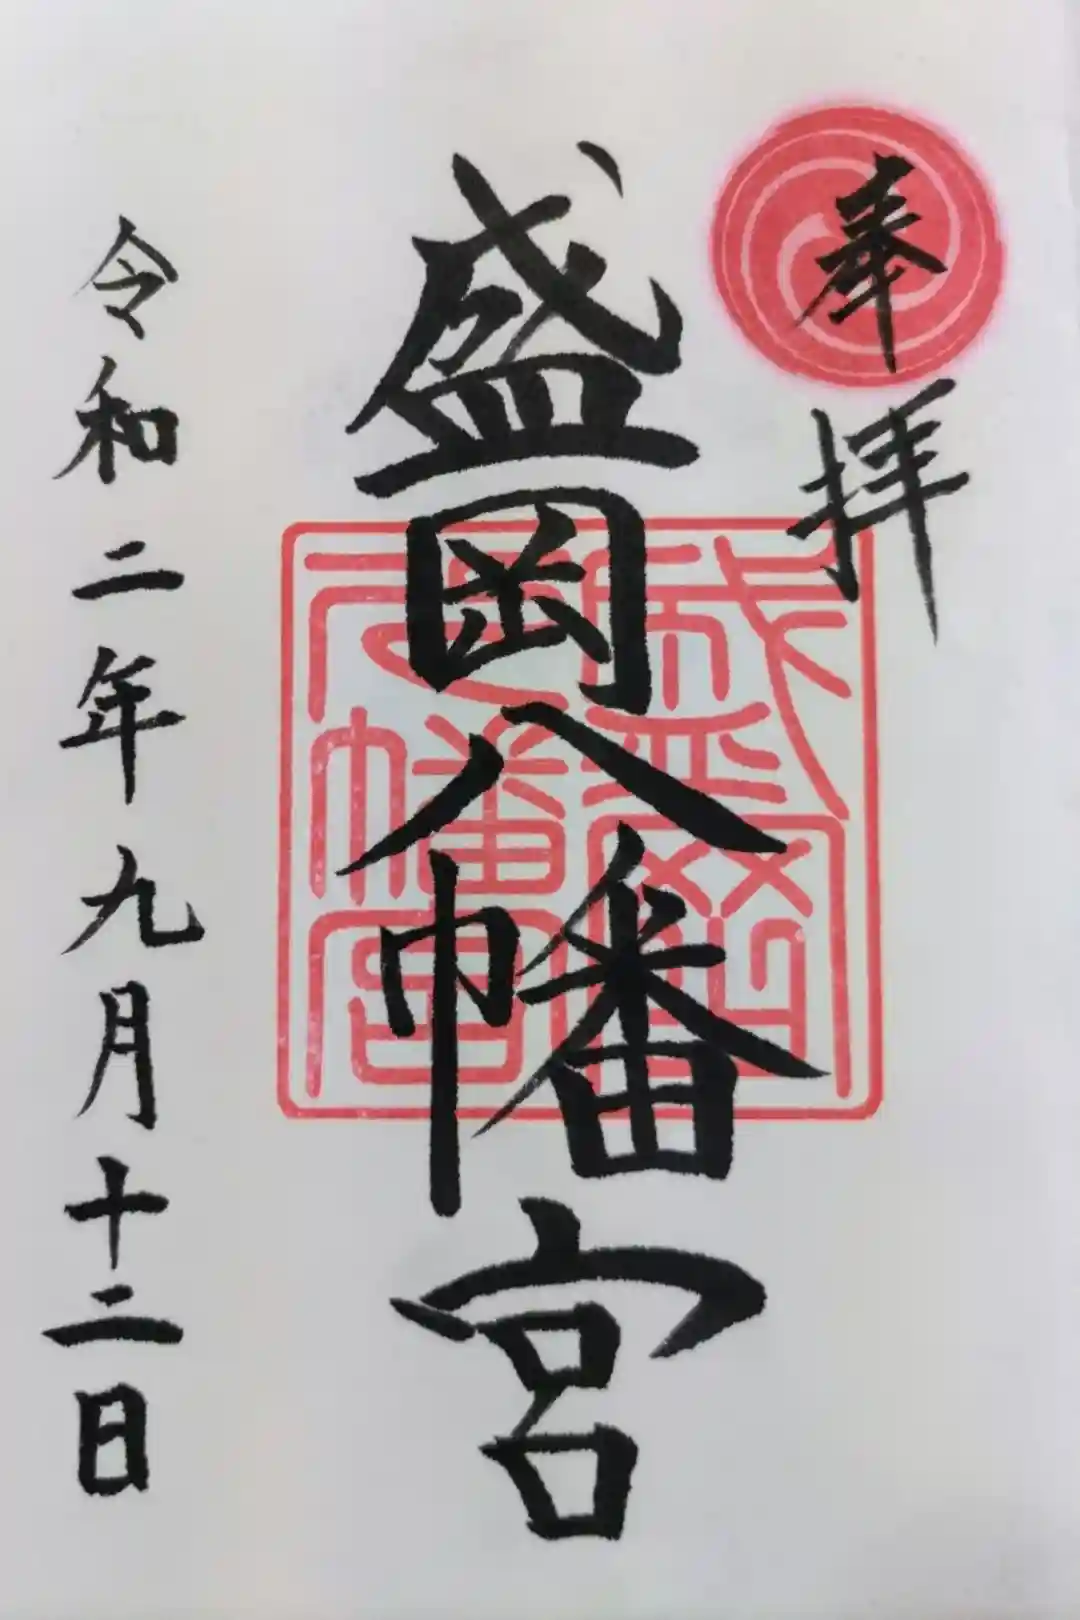 奉拝
盛岡八幡宮
盛岡八幡宮
令和二年九月十二日